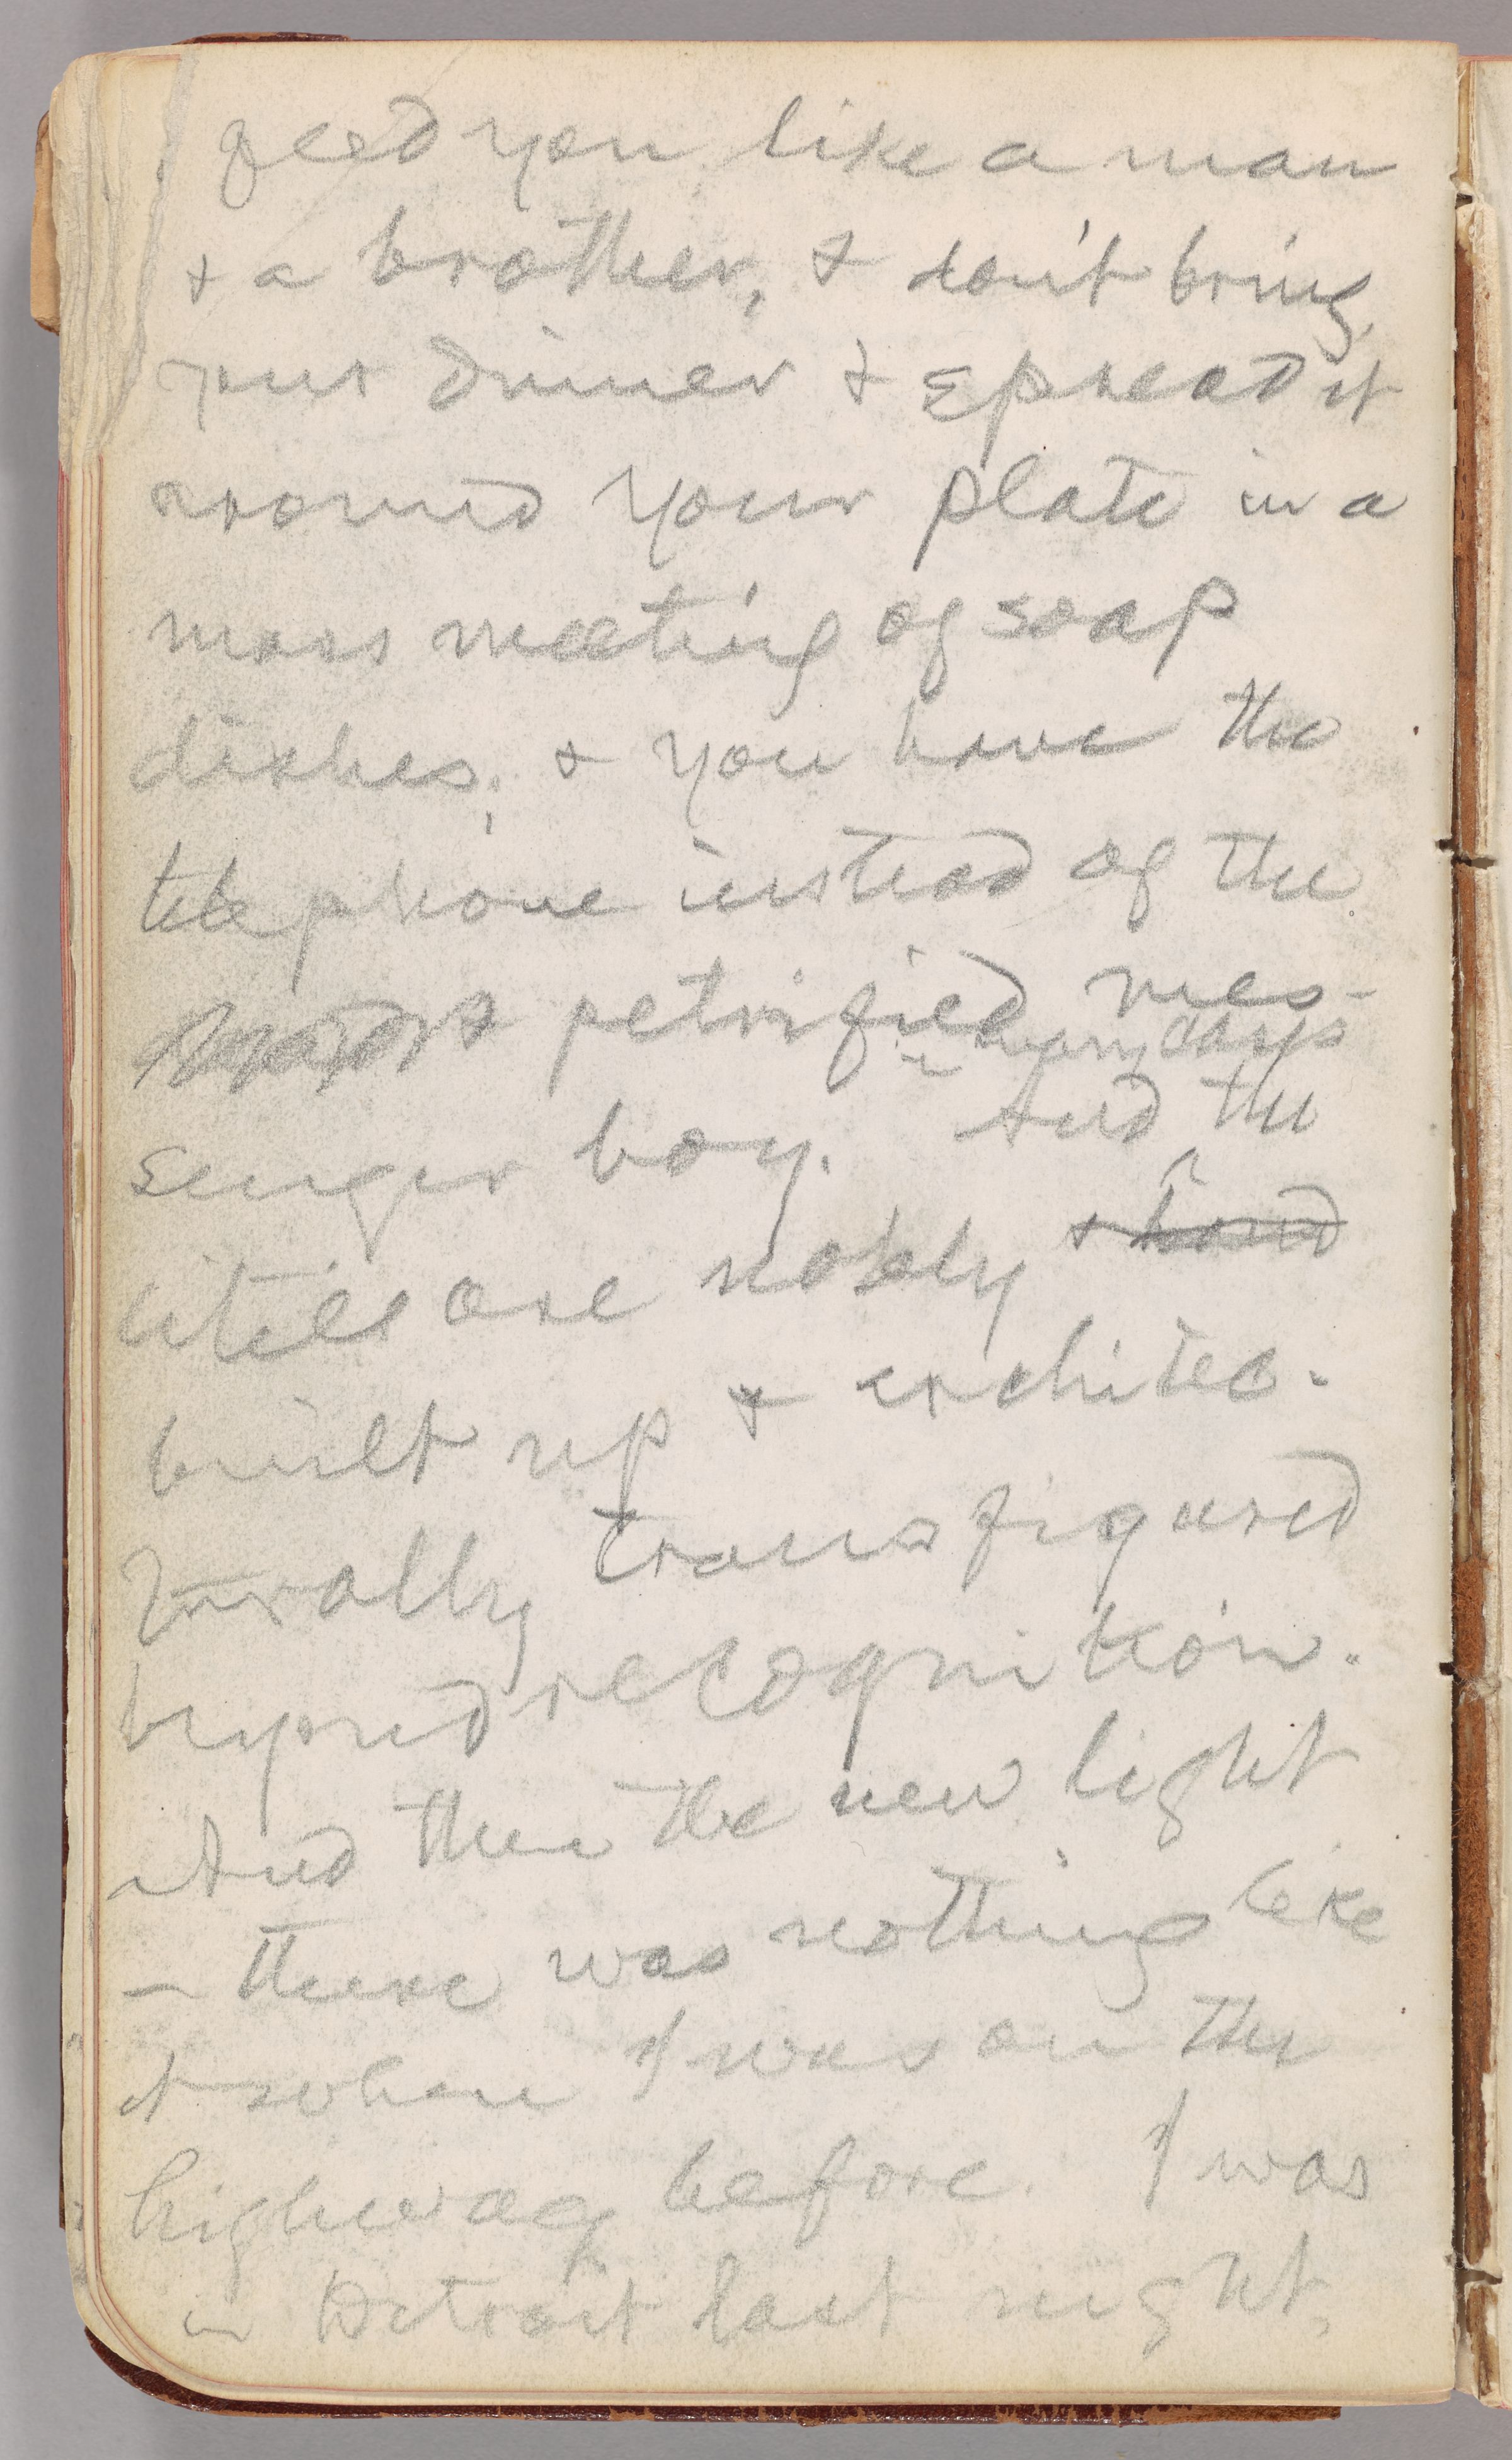 feed you like a man
& a brother, & don't bring
your dinner & spread it
around your plate in a
mass meeting of soap
dishes; & you have the
telephone instead of the
petrified mes-
senger boy. And the
days
cities are nobly & hand
built up & architec-
turally transfigured
beyond recognition.
And then the new light
— there was nothing like
it when I was on the
highway before. I was
in Detroit last night,